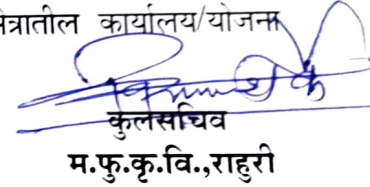 क्षेत्रातील कार्यालय/योजना
कुलसचिव
म.फु.कृ.वि.,राहुरी